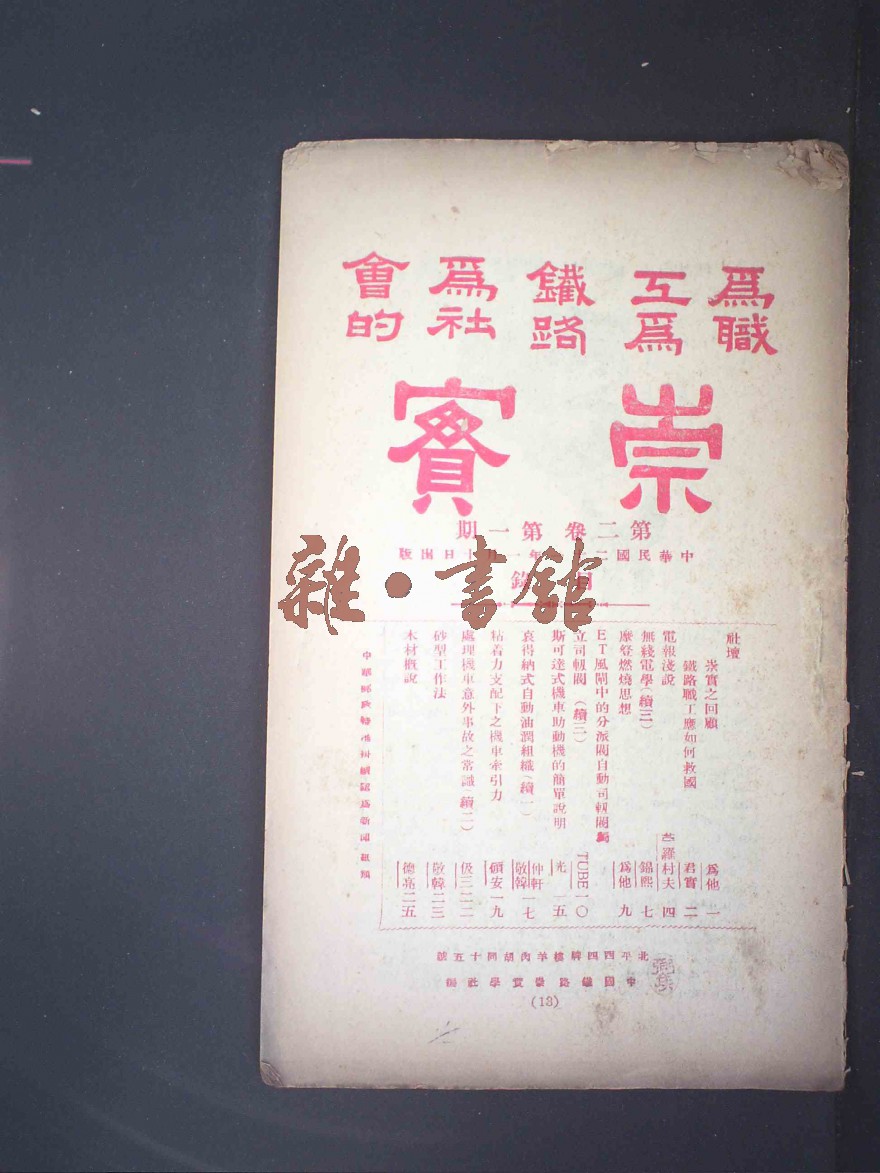 爲職工爲鐵路爲社會的
崇實
第二卷 第一期
中華民國二 年一 日出版
目 錄
社壇
崇實之回顧 爲他 一
鐵路職工應如何救國 君實 二
電報淺說 苎羅村夫 四
無綫電學(續三) 錦熙 七
摩登燃燒思想 爲他 九
ET風閘中的分派閥自動司軔閥獨立司軔閥 (續三) TUBE 一〇
斯可達式機車助動機的簡單說明 光 一五
哀得納式自動油潤組織(續一) 仲軒 敬韓 一七
粘着力支配下之機車牽引力 頌安 一九
處理機車意外事故之常識(續二) 伋三 二二
砂型工作法 敬韓 二三
木材概說 德亮 二五
中華郵政特准掛號認爲新聞紙類
北平西四牌樓羊肉胡同十五號
中國鐵路崇實學社編
(13)
雜·書館